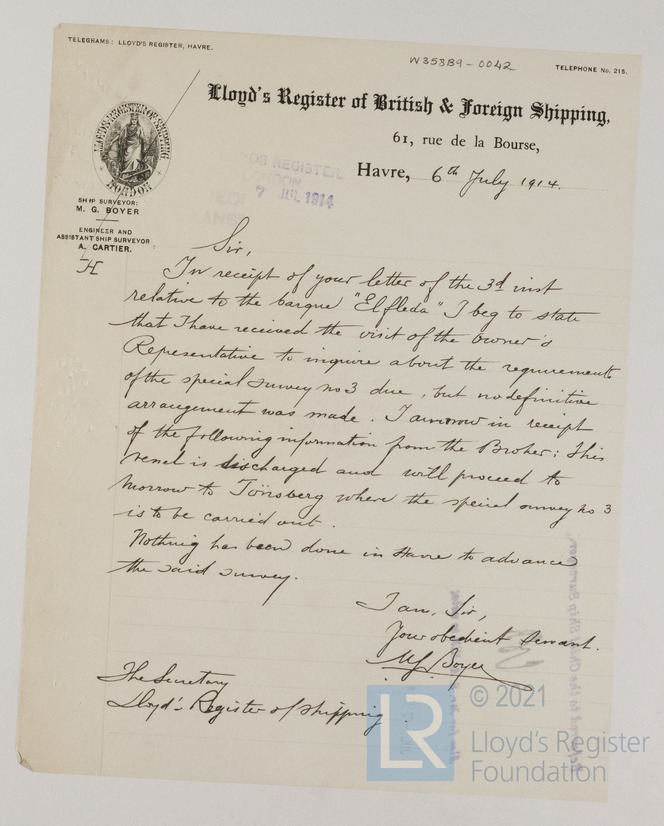 TELEGRAMS: LLOYD'S REGISTER, HAVRE.
W353B9-0042
TELEPHONE No. 215.
Lloyd's Register of British & Foreign Shipping,
61, rue de la Bourse,
Havre, 6th July 1914.
LLOYD'S REGISTER OF SHIPPING
LONDON
7 JUL 1914
SHIP SURVEYOR:
M. G. BOYER
ENGINEER AND
ASSISTANT SHIP SURVEYOR
A. CARTIER.
H
Sir,
In receipt of your letter of the 3d inst
relative to the barque "Elfleda" I beg to state
that I have received the visit of the owner's
Representative to inquire about the requirements
of the special survey no 3 due, but no definitive
arrangement was made. I am now in receipt
of the following information from the Broker: This
vessel is discharged and will proceed to
morrow to Tönsberg where the special survey no 3
is to be carried out.
Nothing has been done in Havre to advance
the said survey.
I am, Sir,
Your obedient Servant.
M G Boyer
The Secretary
Lloyd's Register of Shipping.
Referred to the Chief Ship Surveyor.
LR
© 2021
Lloyd's Register
Foundation